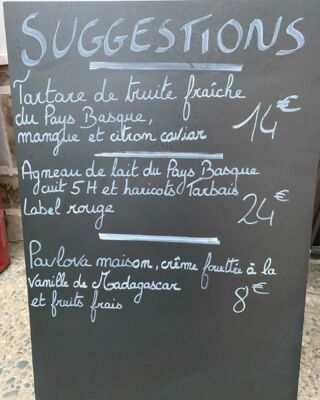 SUGGESTIONS
Tartare de truite fraîche
du Pays Basque,
mangue et citron caviar 14€
Agneau de lait du Pays Basque
cuit 5H et haricots Tarbais
Label rouge 24€
Pavlova maison, crème fouettée à la
vanille de Madagascar
et fruits frais 8€